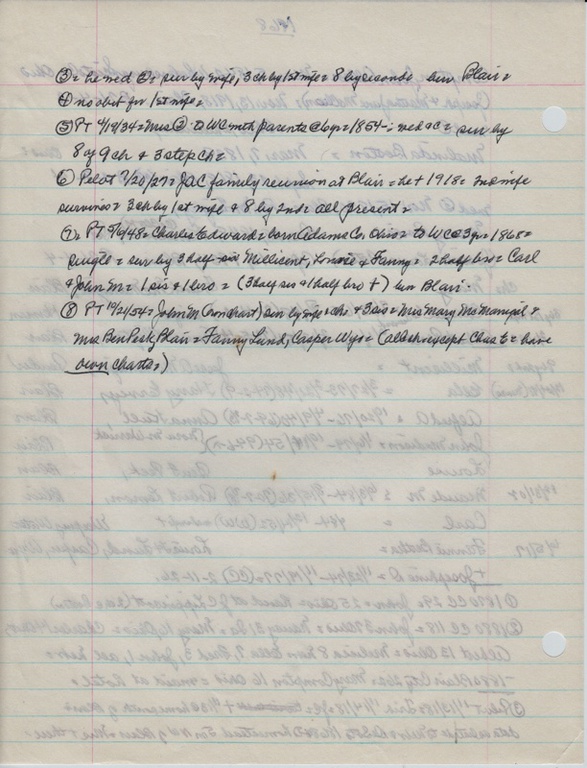 ③ = he med ②= sur by wife, 3 ch by 1st wife = 8 by second = bur Blair =
④ no obit for 1st wife =
⑤ PT 4/19/34 = Mrs ② to WC with parents @ 6 yr = 1854 = med ac = sur by
8 of 9 ch & 3 step ch =
⑥ Pilot 7/20/27 = JAC family reunion at Blair = he + 1918 = 2nd wife
survives = 3 ch by 1st wife & 8 by 2nd = all present =
⑦ = PT 9/9/48 = Charles Edward = born Adams Co, Ohio = to WC @ 3 yr = 1868 =
single = sur by 3 half sis Millicent, Lonnie & Fanny = 2 half bro = Carl
& John M = 1 sis & 1 bro = (3 half sis & 1 half bro +) bur Blair.
⑧ PT 10/21/54 = John M (on chart) sur by wife = ch & 3 sis = Mrs Mary McManigal &
Mrs Ben Peck, Blair = Fanny Lund, Casper Wyo = (all ch except Chas E = have
own charts)